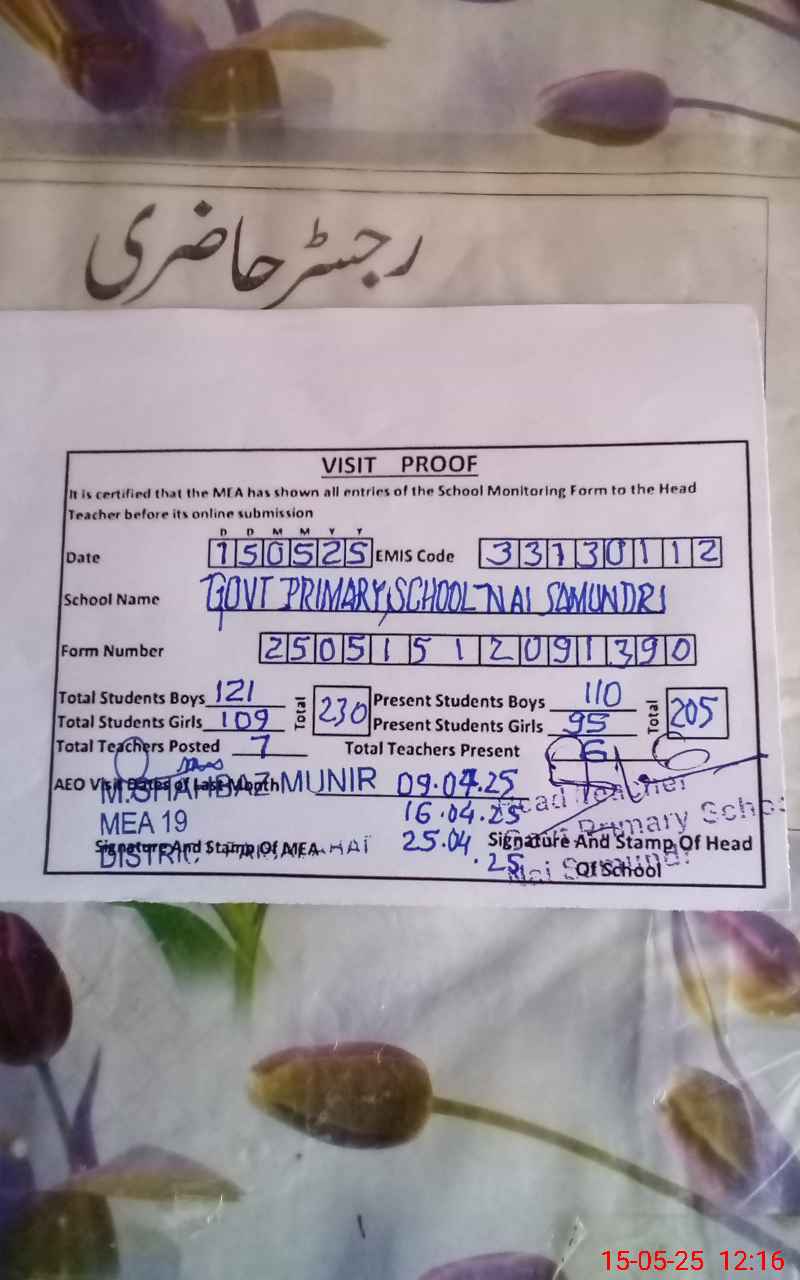 رجسٹر حاضری
VISIT PROOF
It is certified that the MEA has shown all entries of the School Monitoring Form to the Head
Teacher before its online submission
D D M M Y Y
Date 150525 EMIS Code 33730112
School Name GOVT PRIMARY SCHOOL NAI SAMUNDRI
Form Number 25051512091390
Total Students Boys 121 Total 230 Present Students Boys 110 Total 205
Total Students Girls 109 Present Students Girls 95
Total Teachers Posted 7 Total Teachers Present 6
AEO Visit Dates of Last Month 09.04.25
M.SHAHBAZ MUNIR
16.04.25
Head Teacher
MEA 19
Primary School
25.04.25
Signature And Stamp Of MEA
Signature And Stamp Of Head
Of School
DISTRIC
Nai Samundri
15-05-25 12:16